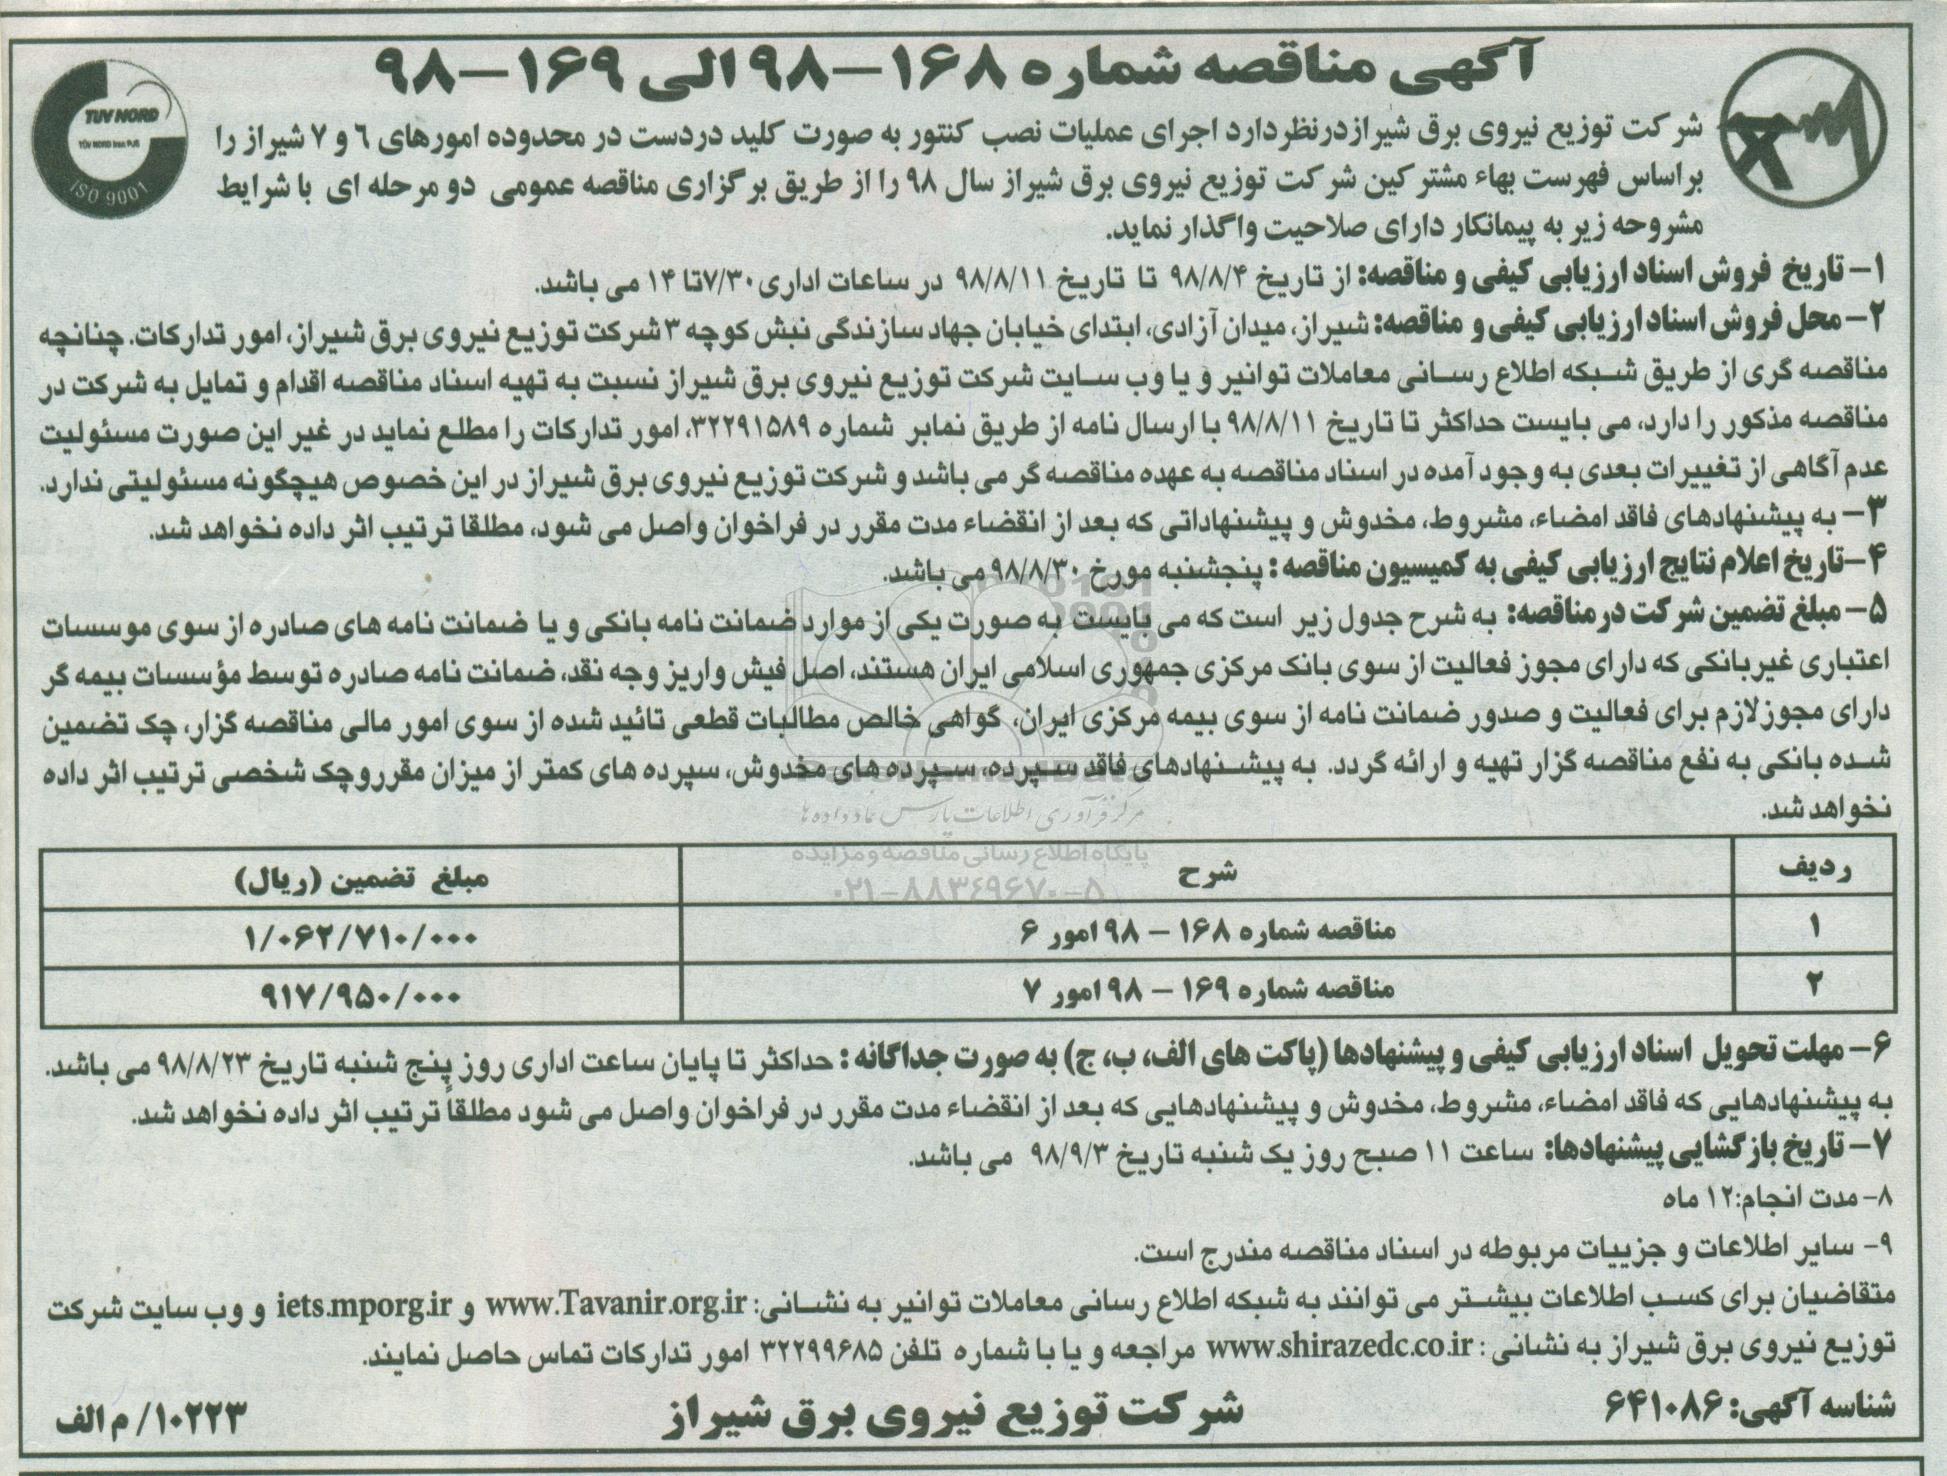 آگهی مناقصه شماره ۱۶۸–۹۸ الی ۱۶۹–۹۸
TUV NORD
TÜV NORD Iran PJS
ISO 9001
شرکت توزیع نیروی برق شیراز درنظردارد اجرای عملیات نصب کنتور به صورت کلید دردست در محدوده امورهای ۶ و ۷ شیراز را
براساس فهرست بهاء مشترکین شرکت توزیع نیروی برق شیراز سال ۹۸ را از طریق برگزاری مناقصه عمومی دو مرحله ای با شرایط
مشروحه زیر به پیمانکار دارای صلاحیت واگذار نماید.
۱– تاریخ فروش اسناد ارزیابی کیفی و مناقصه: از تاریخ ۹۸/۸/۴ تا تاریخ ۹۸/۸/۱۱ در ساعات اداری ۷/۳۰ تا ۱۴ می باشد.
۲– محل فروش اسناد ارزیابی کیفی و مناقصه: شیراز، میدان آزادی، ابتدای خیابان جهاد سازندگی نبش کوچه ۳ شرکت توزیع نیروی برق شیراز، امور تدارکات. چنانچه
مناقصه گری از طریق شبکه اطلاع رسانی معاملات توانیر و یا وب سایت شرکت توزیع نیروی برق شیراز نسبت به تهیه اسناد مناقصه اقدام و تمایل به شرکت در
مناقصه مذکور را دارد، می بایست حداکثر تا تاریخ ۹۸/۸/۱۱ با ارسال نامه از طریق نمابر شماره ۳۲۲۹۱۵۸۹، امور تدارکات را مطلع نماید در غیر این صورت مسئولیت
عدم آگاهی از تغییرات بعدی به وجود آمده در اسناد مناقصه به عهده مناقصه گر می باشد و شرکت توزیع نیروی برق شیراز در این خصوص هیچگونه مسئولیتی ندارد.
۳– به پیشنهادهای فاقد امضاء، مشروط، مخدوش و پیشنهاداتی که بعد از انقضاء مدت مقرر در فراخوان واصل می شود، مطلقا ترتیب اثر داده نخواهد شد.
۴–تاریخ اعلام نتایج ارزیابی کیفی به کمیسیون مناقصه : پنجشنبه مورخ ۹۸/۸/۳۰ می باشد.
۵– مبلغ تضمین شرکت در مناقصه: به شرح جدول زیر است که می بایست به صورت یکی از موارد ضمانت نامه بانکی و یا ضمانت نامه های صادره از سوی موسسات
اعتباری غیربانکی که دارای مجوز فعالیت از سوی بانک مرکزی جمهوری اسلامی ایران هستند، اصل فیش واریز وجه نقد، ضمانت نامه صادره توسط مؤسسات بیمه گر
دارای مجوز لازم برای فعالیت و صدور ضمانت نامه از سوی بیمه مرکزی ایران، گواهی خالص مطالبات قطعی تائید شده از سوی امور مالی مناقصه گزار، چک تضمین
شده بانکی به نفع مناقصه گزار تهیه و ارائه گردد. به پیشنهادهای فاقد سپرده، سپرده های مخدوش، سپرده های کمتر از میزان مقرروچک شخصی ترتیب اثر داده
نخواهد شد.
مرکز فرآوری اطلاعات پارس نماد داده ها
پایگاه اطلاع رسانی مناقصه و مزایده
۰۲۱–۸۸۳۴۹۶۷۰–۵
ردیف شرح مبلغ تضمین (ریال)
۱ مناقصه شماره ۱۶۸ – ۹۸ امور ۶ ۱/۰۶۲/۷۱۰/۰۰۰
۲ مناقصه شماره ۱۶۹ – ۹۸ امور ۷ ۹۱۷/۹۵۰/۰۰۰
۶– مهلت تحویل اسناد ارزیابی کیفی و پیشنهادها (پاکت های الف، ب، ج) به صورت جداگانه : حداکثر تا پایان ساعت اداری روز پنج شنبه تاریخ ۹۸/۸/۲۳ می باشد.
به پیشنهادهایی که فاقد امضاء، مشروط، مخدوش و پیشنهادهایی که بعد از انقضاء مدت مقرر در فراخوان واصل می شود مطلقاً ترتیب اثر داده نخواهد شد.
۷– تاریخ بازگشایی پیشنهادها: ساعت ۱۱ صبح روز یک شنبه تاریخ ۹۸/۹/۳ می باشد.
۸- مدت انجام:۱۲ ماه
۹- سایر اطلاعات و جزییات مربوطه در اسناد مناقصه مندرج است.
متقاضیان برای کسب اطلاعات بیشتر می توانند به شبکه اطلاع رسانی معاملات توانیر به نشانی: www.Tavanir.org.ir و iets.mporg.ir و وب سایت شرکت
توزیع نیروی برق شیراز به نشانی : www.shirazedc.co.ir مراجعه و یا با شماره تلفن ۳۲۲۹۹۶۸۵ امور تدارکات تماس حاصل نمایند.
شناسه آگهی: ۶۴۱۰۸۶ شرکت توزیع نیروی برق شیراز ۱۰۲۲۳/ م الف